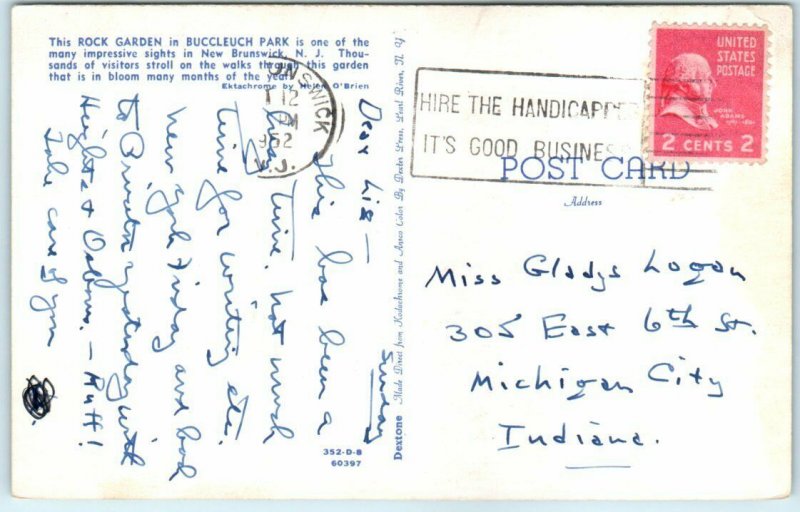 This ROCK GARDEN in BUCCLEUCH PARK is one of the
many impressive sights in New Brunswick, N. J. Thou-
sands of visitors stroll on the walks through this garden
that is in bloom many months of the year.
Ektachrome by Helen O'Brien
UNSWICK
12
PM
1952
N.J.
HIRE THE HANDICAPPED
IT'S GOOD BUSINESS
UNITED
STATES
POSTAGE
JOHN
ADAMS
2 CENTS 2
POST CARD
Address
Miss Gladys Logan
305 East 6th St.
Michigan City
Indiana.
Sunday
Dear Lig —
This has been a
time. Not much
time for writing etc.
New York Friday and back
to Princeton yesterday with
Heights & Osborns. — Ruff!
Take care of you
Dextone
Made Direct from Kodachrome and Ansco Color By Dexter Press, Pearl River, N. Y.
352-D-8
60397